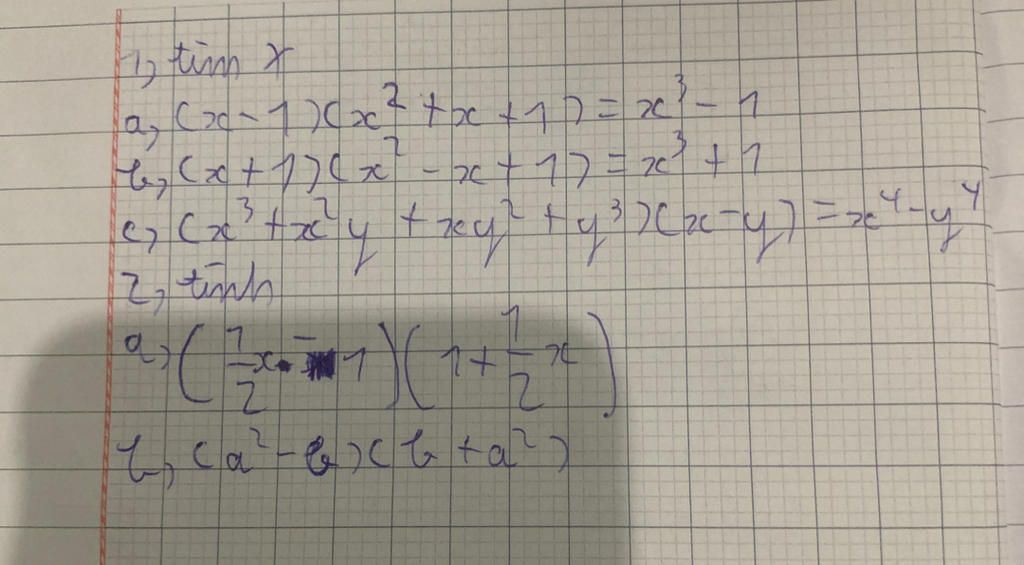 1, tìm x
a, (x - 1)(x² + x + 1) = x³ - 1
b, (x + 1)(x² - x + 1) = x³ + 1
c, (x³ + x²y + xy² + y³)(x - y) = x⁴ - y⁴
2, tính
a, (1/2 x - 1)(1 + 1/2 x)
b, (a² - b)(b + a²)